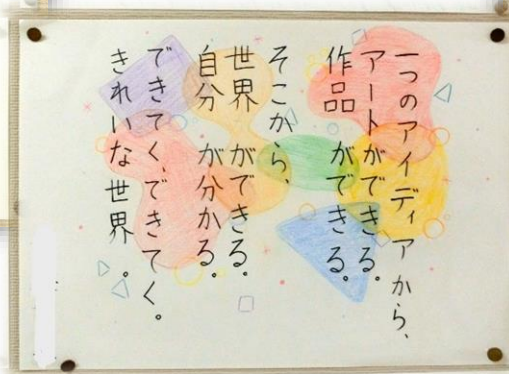 一つのアイディアから、
アートができる。
作品ができる。
そこから、
世界ができる。
自分が分かる。
できてく、できてく。
きれいな世界。